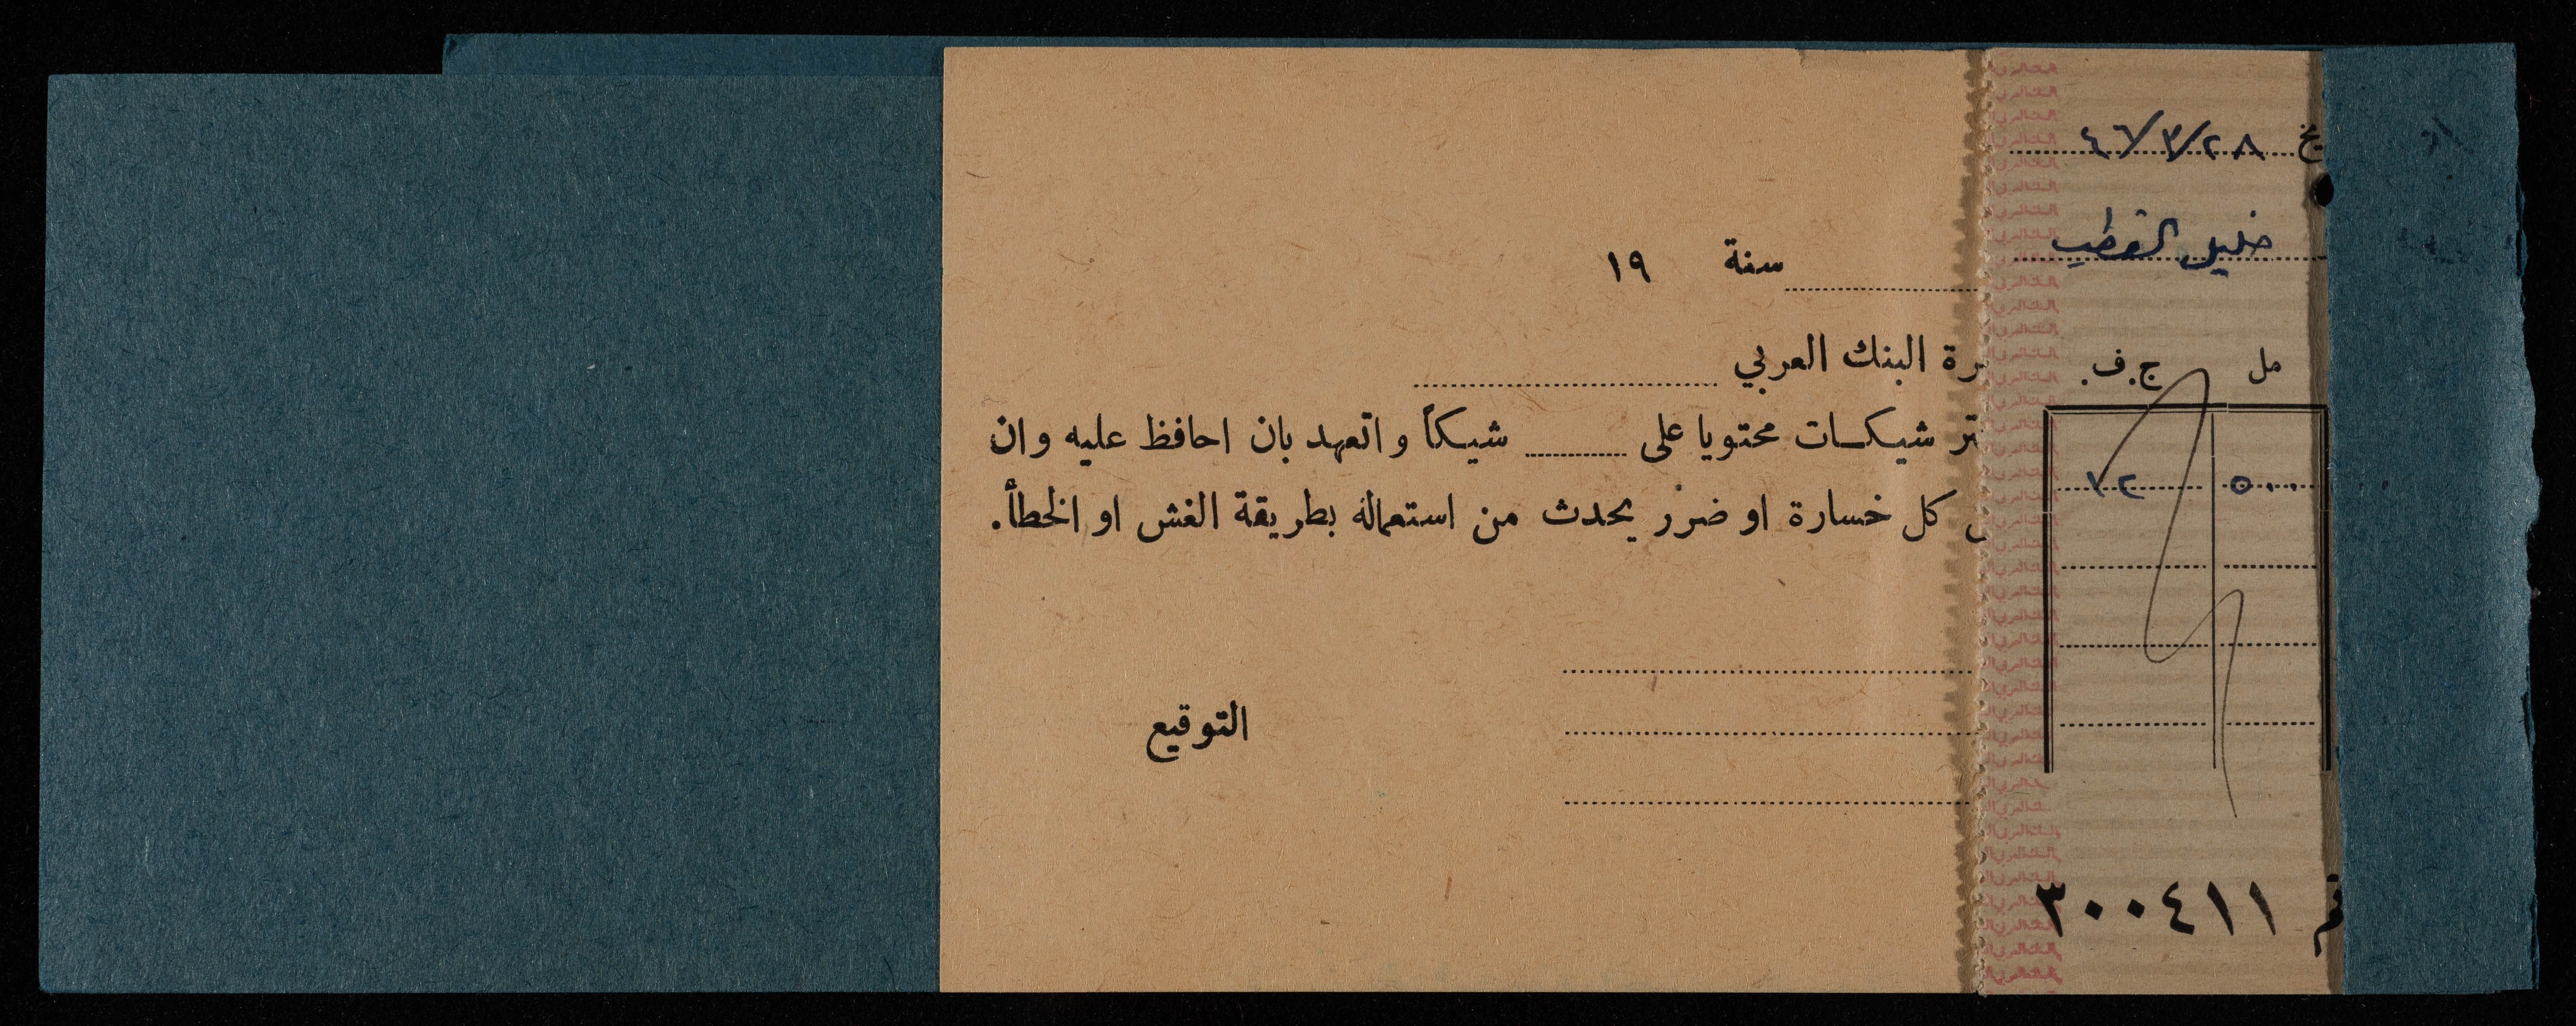 يخ ٤٦/٣/٢٨
خليل القطب
مل ج.ف.
٥٠٠ ٧٢
قم ٣٠٠٤١١
سنة ١٩
رة البنك العربي
تر شيكات محتويا على شيكاً واتعهد بان احافظ عليه وان
كل خسارة او ضرر يحدث من استعماله بطريقة الغش او الخطأ.
التوقيع